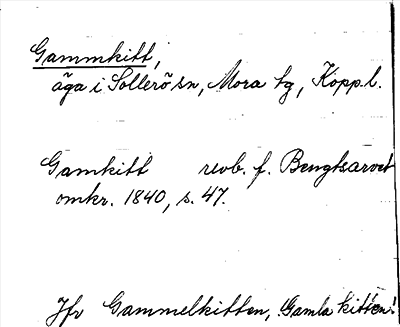 Gammkitt,
äga i Sollerö sn, Mora tg, Kopp.l.
Gamkitt revb. f. Bengtsarvet
omkr. 1840, s. 47.
Jfr Gammelkitten, Gamla kitten!